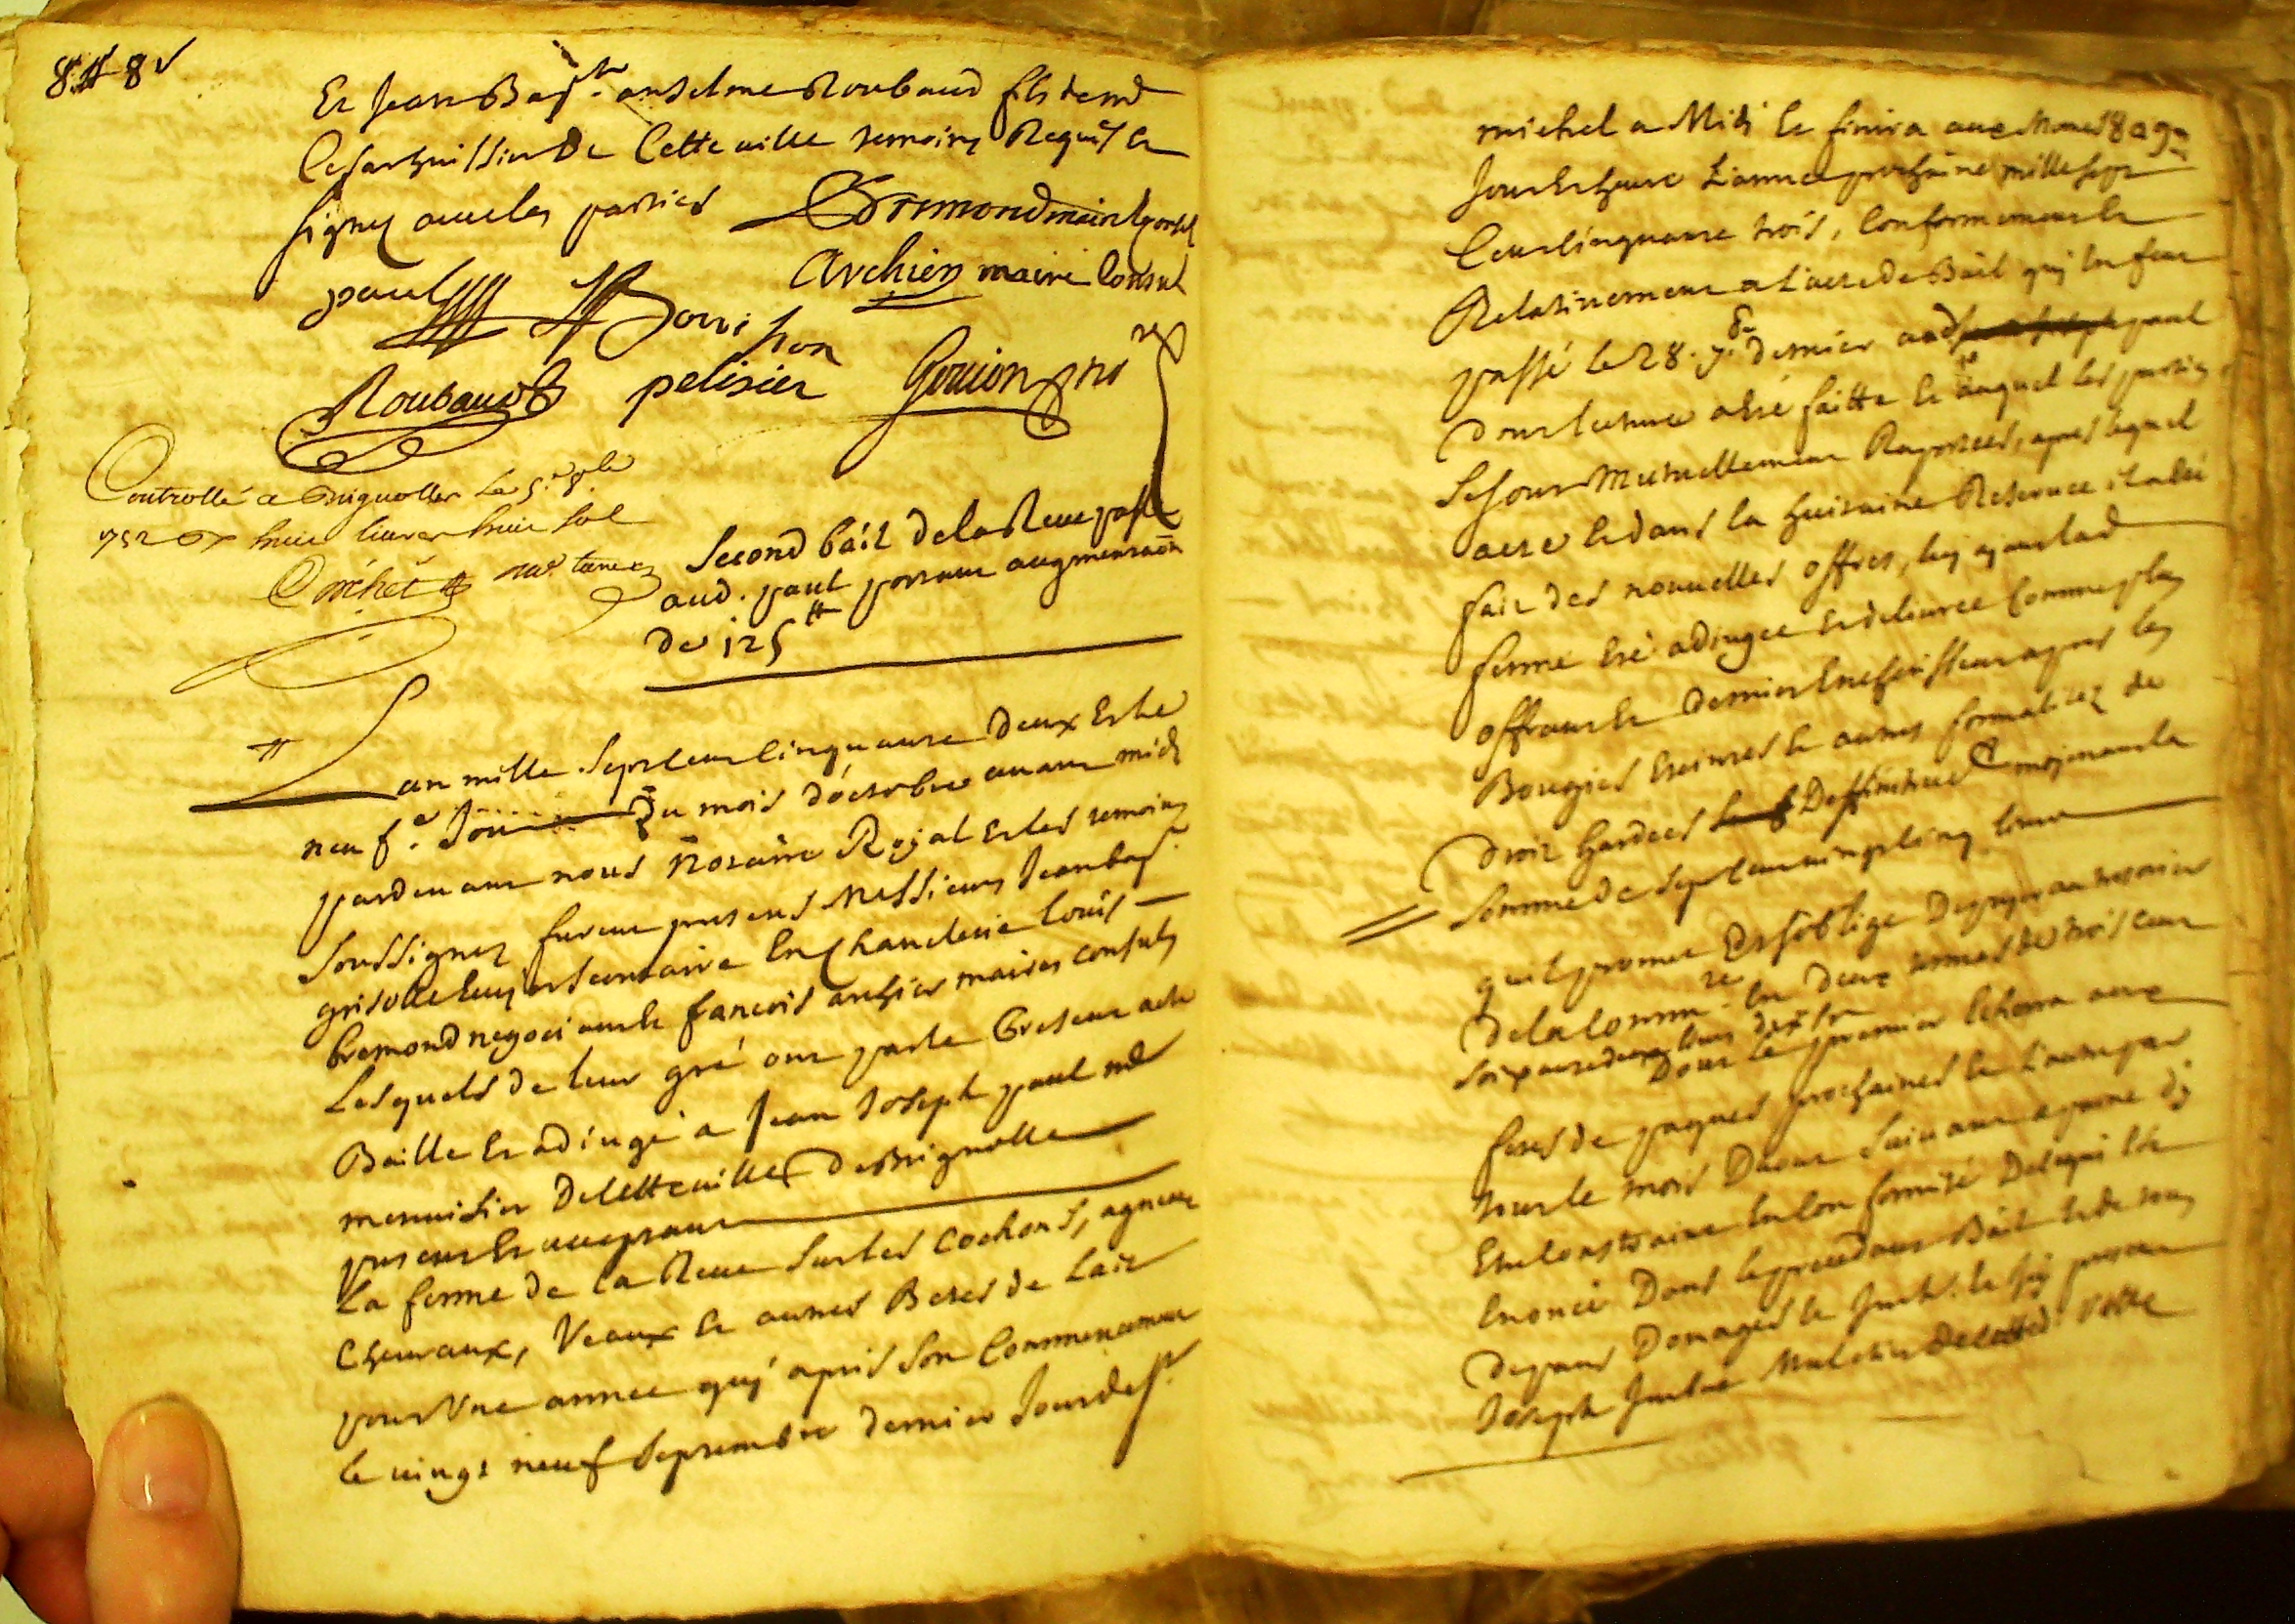 8 ₶ 8 s
Et Jean Bap.te anselme Roubaud fils de md
Cesar huissier de Cette ville temoins Requis et
signez avec les parties Bremond maire Consul
paul Archier maire Consul
Bouishon
Roubaud pelisier Goujon no.re
Controllé a Brignolles le 5.e 8.bre
1752 Rx huit livres huit sols
Corchet
Second bail de la Reve passé
aud. paul portant augmentaõn
de 125 ₶
L'an mille sept cent Cinquante deux et le
neuf.e Jour du mois d'octobre avant midi
pardevant nous Notaire Royal et les temoins
soussignez furent presens Messieurs Jean bap.
grisolle secretaire en Chancelerie Louis
bremond negociant et francois archier maires consuls
Lesquels de leur gré ont par le present acte
Baillé et adjugé a Jean Joseph paul md
menuisier de Cette ville de Brignolle
present et acceptant
La ferme de la Reve sur les cochons, agneaux
Chevraux, Veaux et autres Betes de Lait
pour Une année quy a pris son Commencement
le vingt neuf septembre dernier Jour de st.
michel a Midi et finira aux memes
Jour et heure L'année prochaine mille sept
Cent Cinquante trois, Conformement et
Relativement a L'acte de Bail quy luy feut
passé le 28. 7.bre dernier aud paul
dont lecture a eté faitte et auquel les parties
se sont Mutuellement Raportées, apres lequel
acte et dans la huitaine Reservée il a eté
fait des nouvelles offres, la
ferme eté adjugée et delivrée Comme plus
offrant et dernier Encherisseur apres les
Bougies Eteintes et autres formalitez de
droit gardées Deffinitive moyenant la
somme de sept cent vingt cinq livres
qu'il promet Et s'oblige De payer au tresorier
de la Comm.té en deux termes de trois cent
soixante deux livres dix sols
Dont le premier Echerra aux
fetes de paques prochaines et L'autre par
tout le mois D'aout suivant a peine d
Et en Conformité De
Enoncé Dans le precedant Bail et de tous
depans Domages et
Joseph Muletier de Cette Ville